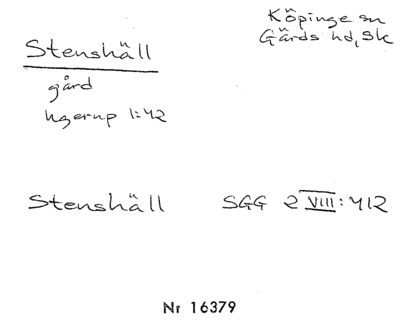 Stenshäll
Köpinge sn
Gärds hd, Sk
gård
Ugerup 1:42
Stenshäll SGG 2 VIII:412
Nr 16379